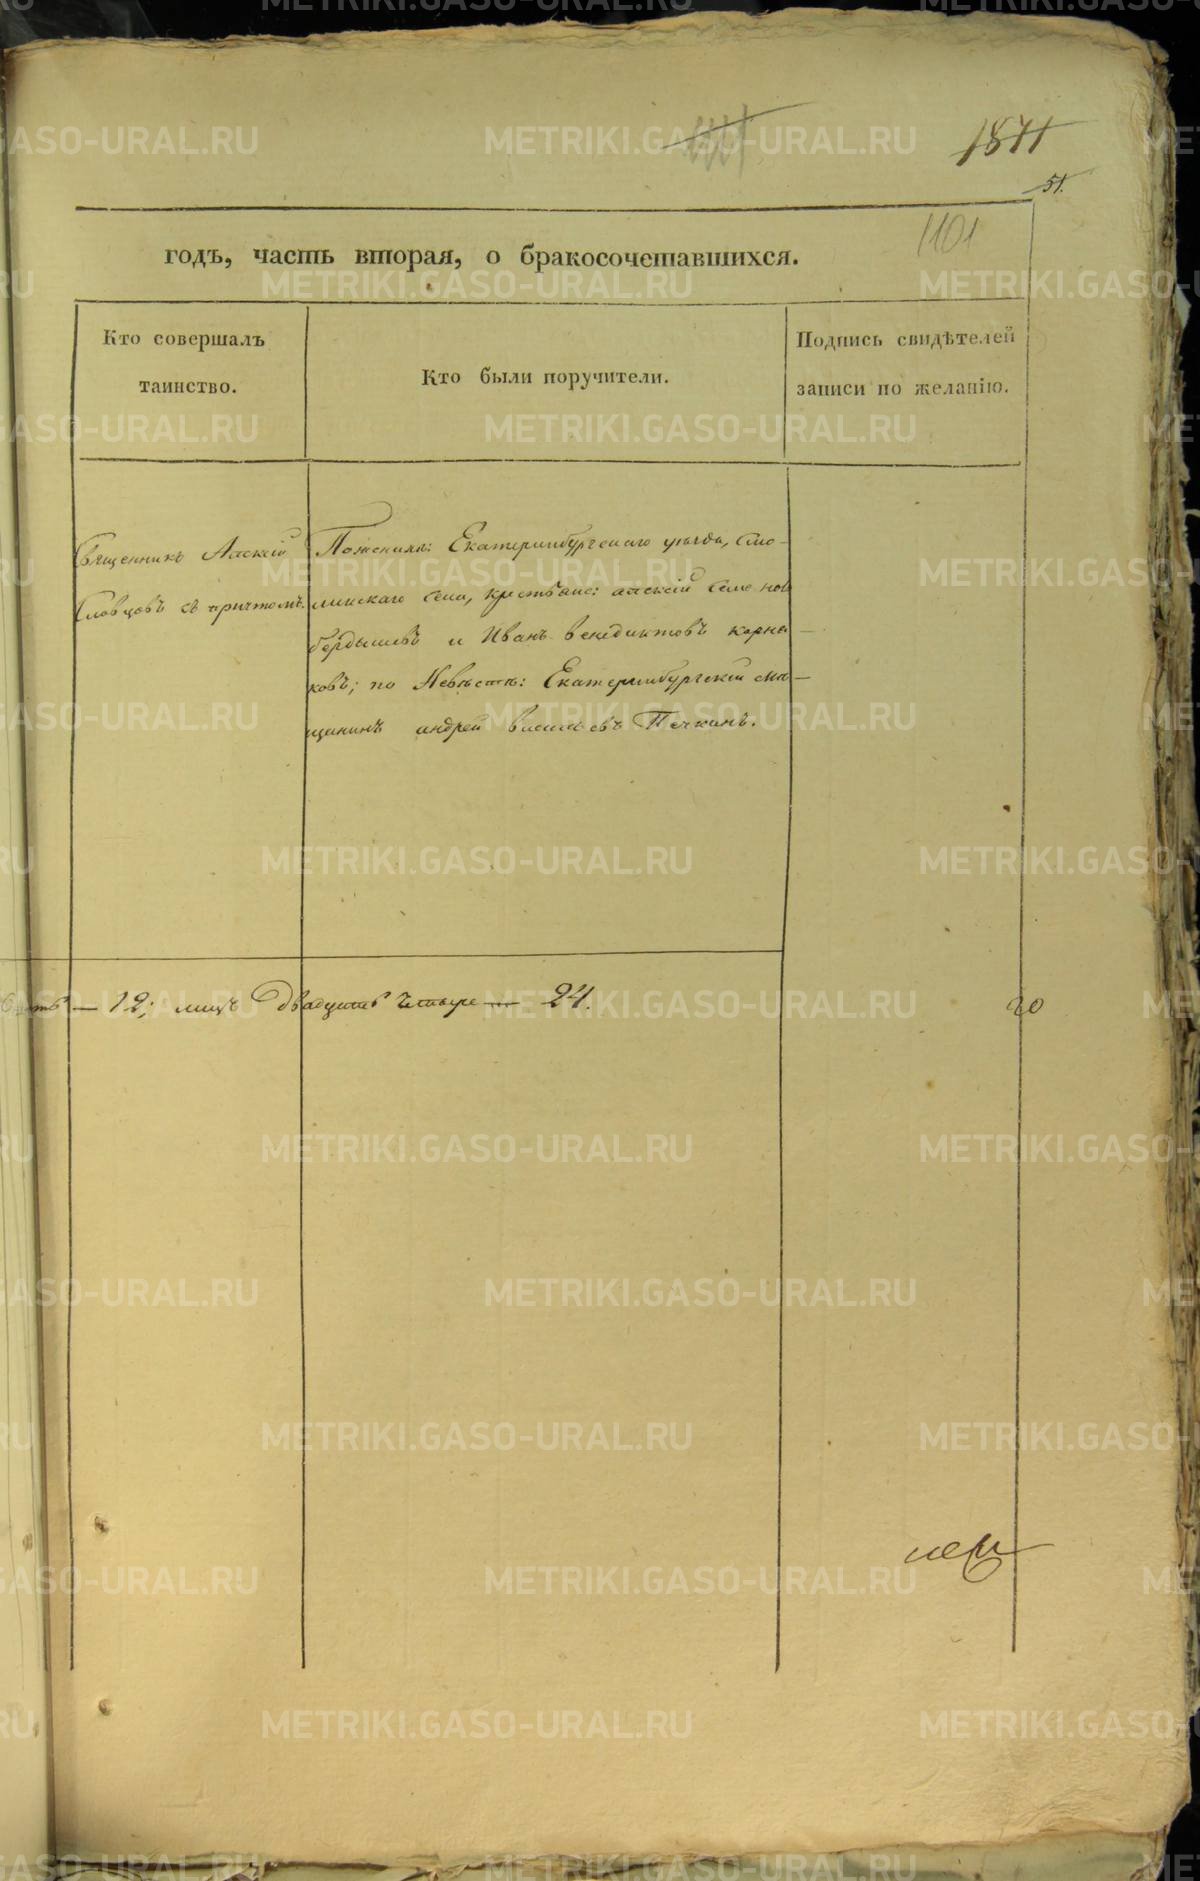 1871
51.
1101
годъ, часть вторая, о бракосочетавшихся.
Кто совершалъ
таинство.
Кто были поручители.
Подпись свидѣтелей
записи по желанію.
Священникъ Алексій
Словцовъ съ причтомъ.
По женихѣ: Екатеринбургскаго уѣзда,
села, крестьяне: алексій Семенов
бердышевъ и Иванъ венедиктовъ корна-
ковъ; по Невѣстѣ: Екатеринбургскій мѣ-
щанинъ андрей васильевъ Печкинъ.
— 12; лицъ Двадцать четыре — 24.
20
METRIKI.GASO-URAL.RU